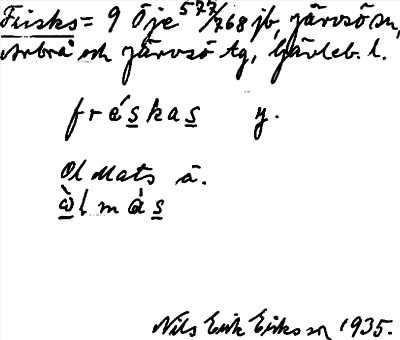 Frisks = 9 Öje 577/768 jb, Järvsö sn,
Arbrå och Järvsö tg, Gävleb. l.
fráskas y.
Ol Mats ä.
òlmàs
Nils Erik Eriksson 1935.